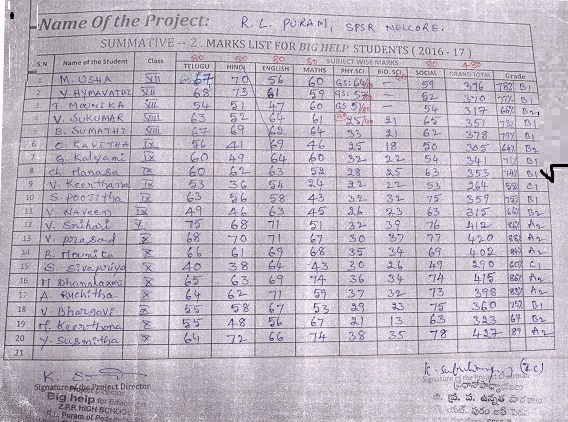 Name Of the Project: R. L. PURAM, SPSR NELLORE.
SUMMATIVE -- 2 . MARKS LIST FOR BIG HELP STUDENTS ( 2016 - 17 )
80 80 80 80 SUBJECT WISE MARKS 80 480
S.N Name of the Student Class TELUGU HINDI ENGLISH MATHS PHY.SCI BIO.SCI SOCIAL GRAND TOTAL Grade
1 M. USHA VIII 67 70 56 60 GS: 64 - 59 376 78% B1
2 Y. HYMAVATHI VIII 68 73 61 59 GS: 57 - 52 370 77% B1
3 T. MOUNIKA VIII 54 51 47 60 GS 51 - 54 317 66% B2
4 V. SUKUMAR VIII 63 52 64 61 25 21 65 351 73% B1
5 B. SUMATHI VIII 67 69 62 64 33 21 62 378 79% B1
6 O. KAVITHA IX 56 41 69 46 25 18 50 305 64% B2
7 G. Kalyani IX 60 49 64 60 32 22 54 341 71% B1
8 Ch. Manasa IX 60 62 63 52 28 25 63 353 74% B1
9 V. Keerthana IX 53 36 54 24 22 22 53 264 55% C1
10 S. Poojitha IX 63 56 58 43 32 32 75 359 75% B1
11 V. Naveen IX 49 46 63 45 26 23 63 315 66% B2
12 V. Srihari X 75 68 71 51 32 39 76 412 86% A2
13 V. prasad X 68 70 71 67 30 37 77 420 88% A2
14 B. Mounika X 66 61 69 68 35 34 69 402 84% A2
15 S. Sivapriya X 40 38 64 43 30 26 49 290 60% C1
16 M Dhanalaxmi X 65 63 69 74 36 34 74 415 86% A2
17 A. Ruchitha X 64 62 71 59 37 32 73 398 83% A2
18 V. Bhargavi X 55 58 67 53 29 23 75 360 75% B1
19 M. Keerthana X 55 48 56 67 21 13 63 323 67 B2
20 Y. Susmitha X 64 72 66 74 38 35 78 427 89 A2
21
22
Signature of the Project Director Signature of the
Big help for Edu
Z.P.P. HIGH SCHOOL
Puram of